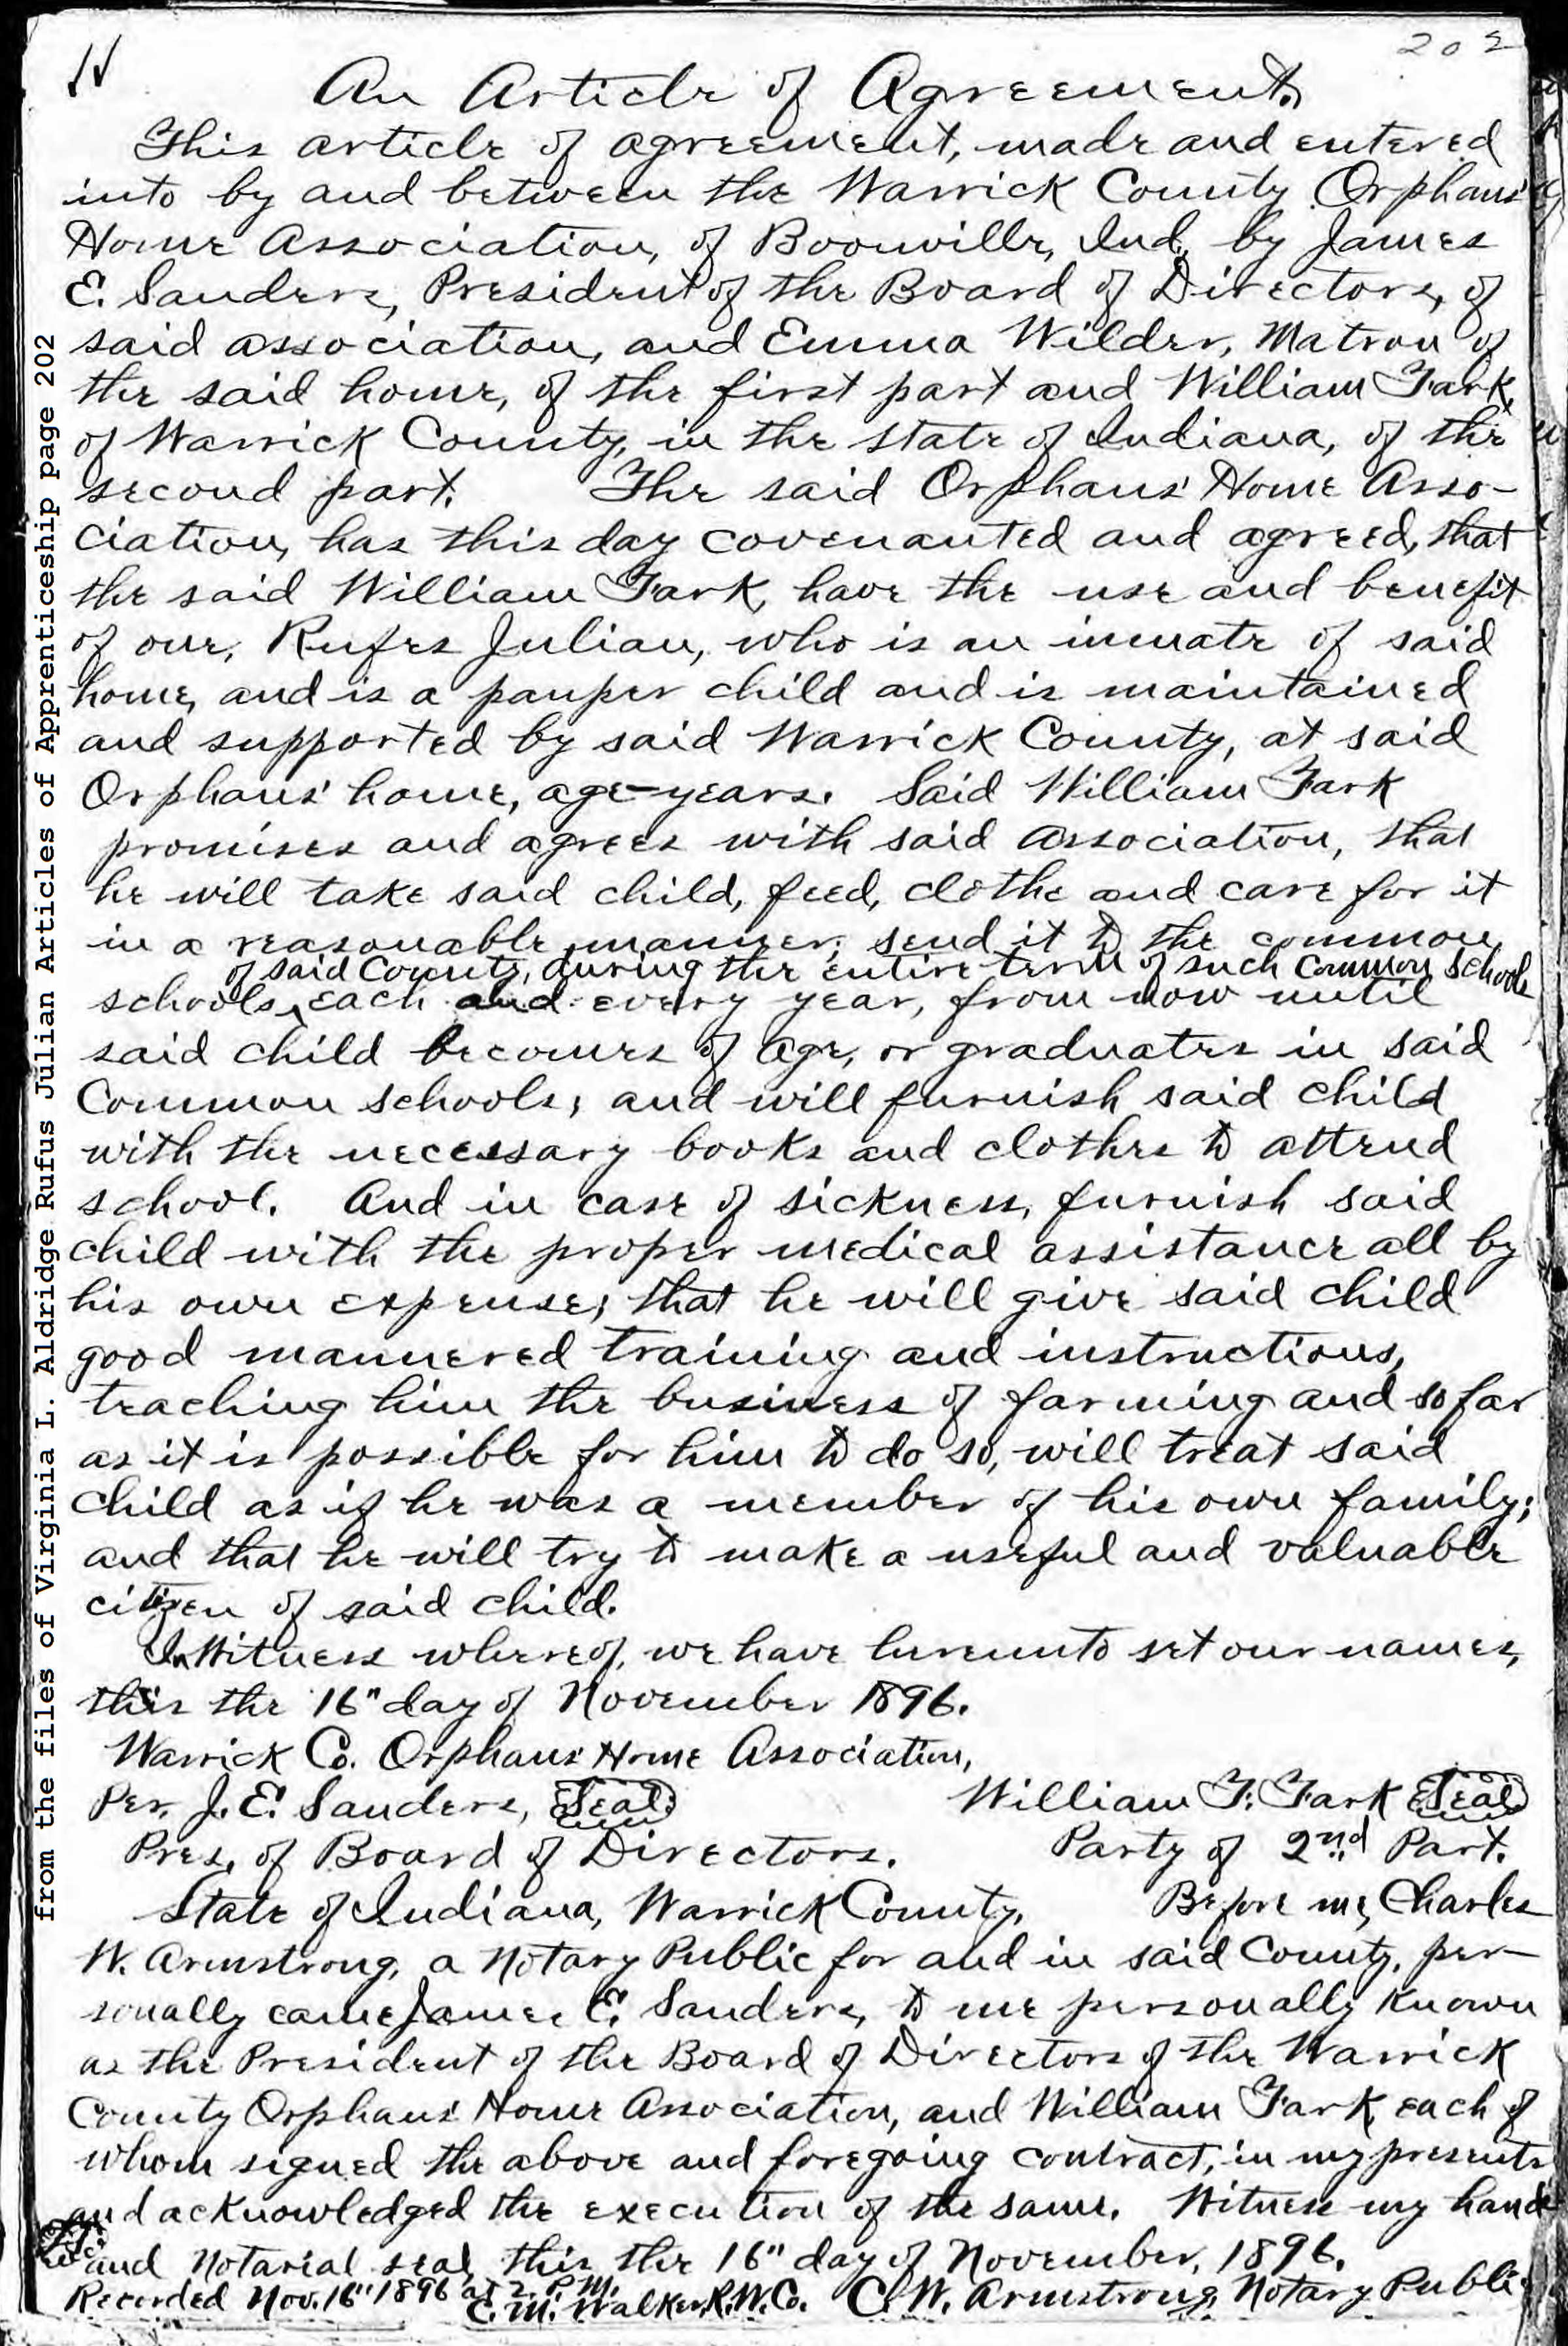 202
An Article of Agreement.
This article of agreement, made and entered
into by and between the Warrick County Orphans'
Home Association, of Boonville, Ind., by James
E. Sanders, President of the Board of Directors, of
said association, and Emma Wilder, Matron of
the said home, of the first part and William Fark,
of Warrick County, in the state of Indiana, of the
second part. The said Orphans' Home Asso-
ciation, has this day covenanted and agreed, that
the said William Fark, have the use and benefit
of one, Rufes Julian, who is an inmate of said
home, and is a pauper child and is maintained
and supported by said Warrick County, at said
Orphans' home, age – years. Said William Fark
promises and agrees with said association, that
he will take said child, feed, clothe and care for it
in a reasonable manner; send it to the common
of said County, during the entire term of such common schools
schools, each and every year, from now until
said child becomes of age, or graduates in said
Common schools; and will furnish said child
with the necessary books and clothes to attend
school. And in case of sickness, furnish said
child with the proper medical assistance all by
his own expense; that he will give said child
good mannered training and instructions,
teaching him the business of farming and so far
as it is possible for him to do so, will treat said
child as if he was a member of his own family;
and that he will try to make a useful and valuable
citizen of said child.
In Witness whereof, we have hereunto set our names,
this the 16" day of November 1896.
Warrick Co. Orphans' Home Association,
Per. J. E. Sanders, Seal. William F. Fark Seal.
Pres. of Board of Directors. Party of 2nd Part.
State of Indiana, Warrick County, Before me, Charles
W. Armstrong, a Notary Public for and in said County, per-
sonally came James E. Sanders, to me personally known
as the President of the Board of Directors of the Warrick
County Orphans' Home Association, and William Fark, each of
whom signed the above and foregoing contract, in my presents
and acknowledged the execution of the same. Witness my hand
and Notarial seal, this the 16" day of November, 1896.
Recorded Nov. 16" 1896 at 2. P.M. C. W. Armstrong, Notary Public
C. M. Walker, R.W.Co.
from the files of Virginia L. Aldridge Rufus Julian Articles of Apprenticeship page 202